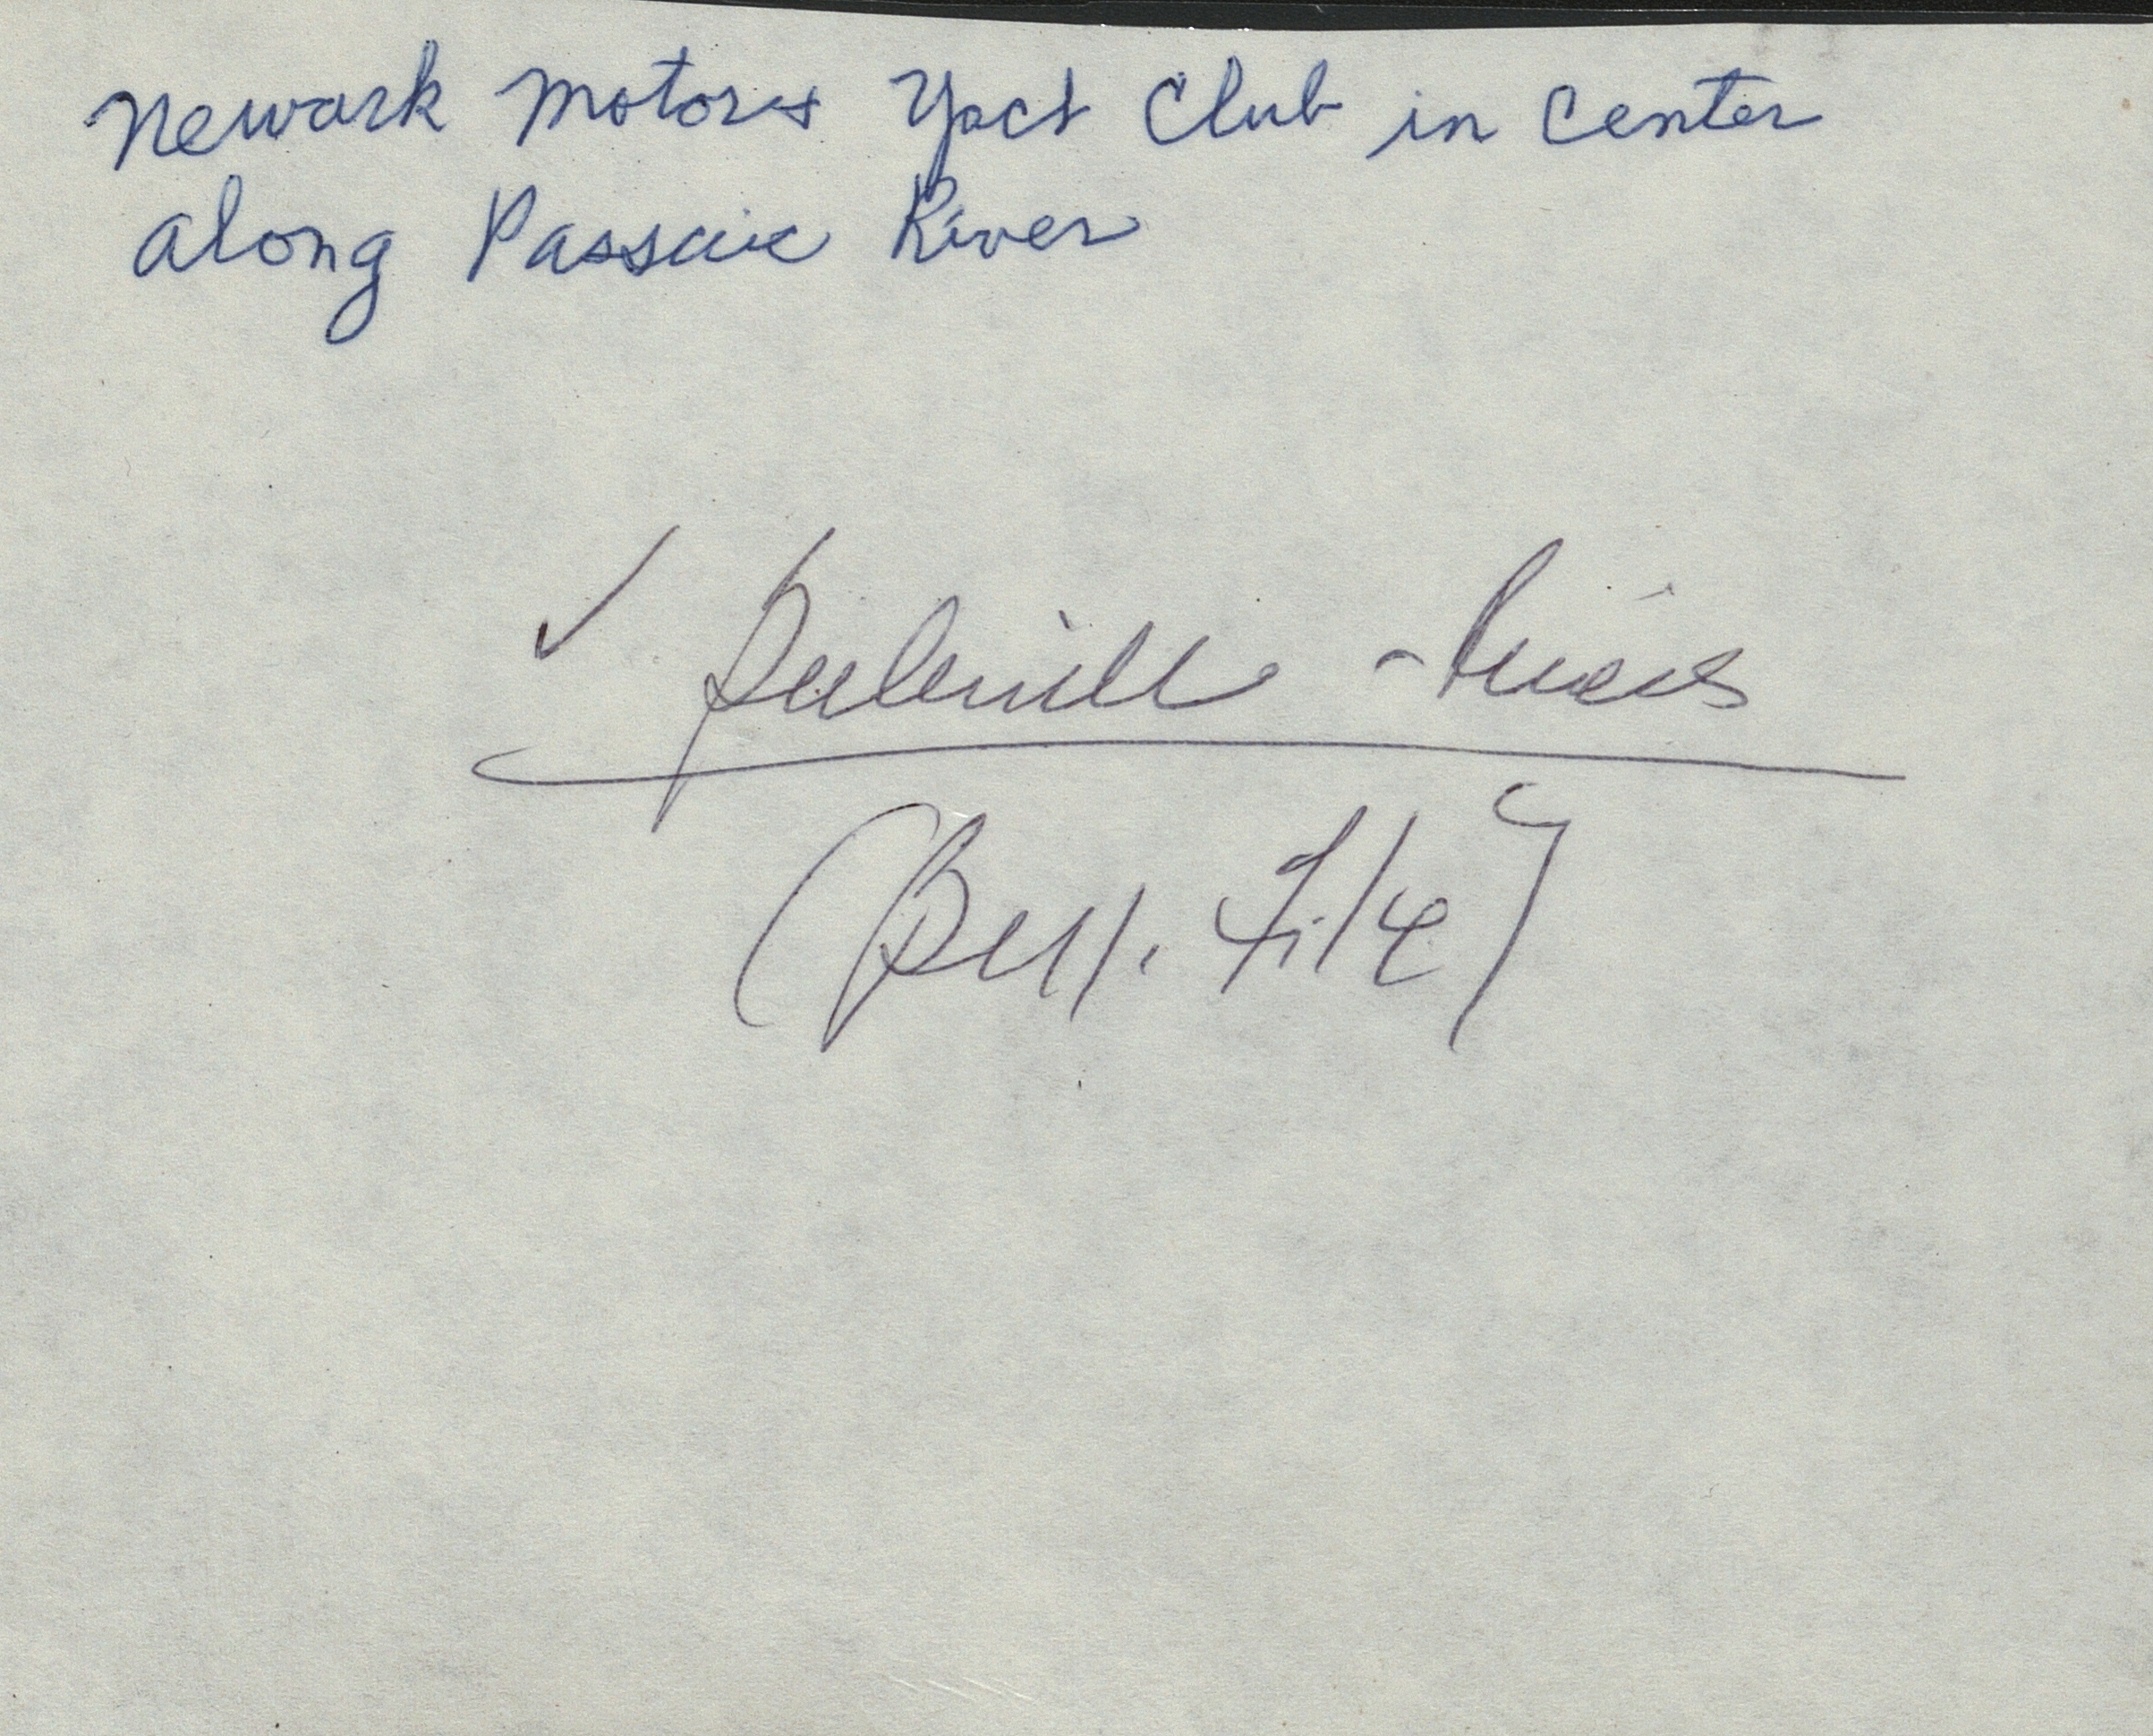 Newark Motors Yact Club in Center
along Passaic River
✓ Belleville - Views
(Bell. File)